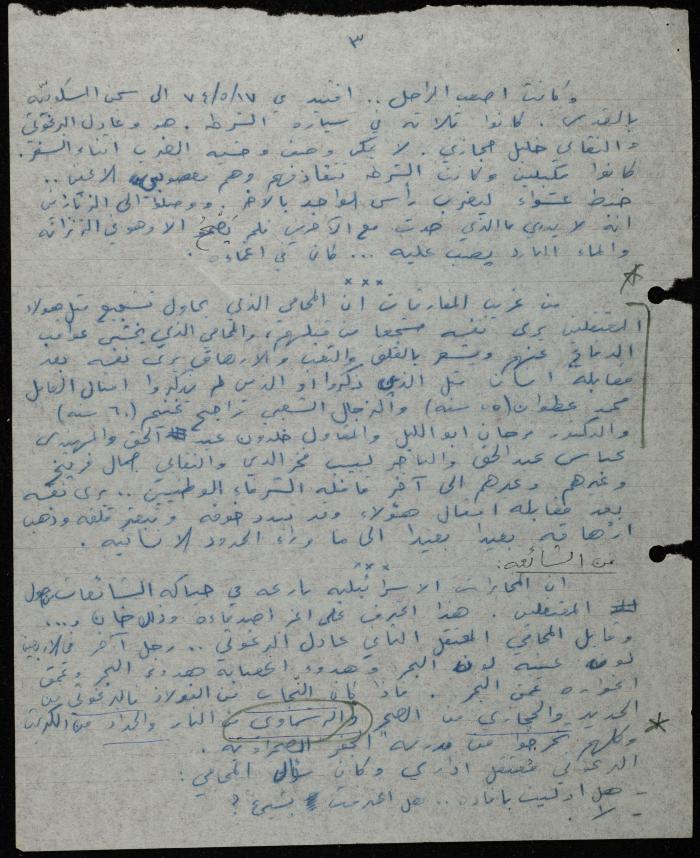 ٣
وكانت اصعب المراحل.. اقتيد في ٧٤/٥/١٧ الى سجن المسكوبيه
بالقدس. كانوا ثلاثة في سيارة الشرطه. هو وعادل البرغوثي
والنقابي خليل حجازي. لا يمكن وصف وحشية الضرب اثناء السفر.
كانوا مكبلين وكانت الشرطه تتقاذفهم وهم معصوبي الاعين..
خبط عشواء ليضرب رأس الواحد بالآخر. ووصل الى الزنازين
انه لا يدري ما الذي حدث مع الآخرين فلم يَصْحُ الا وهو في الزنزانة
والماء البارد يصب عليه ... كان في اغماءه.
× × ×
من غريب المفارقات ان المحامي الذي يحاول تشجيع مثل هؤلاء
المعتقلين يرى نفسه مشجعا من قبلهم، والمحامي الذي يخشى عواقب
الدفاع عنهم ويشعر بالقلق والتعب والارهاق يرى نفسه بعد
مقابلة انسان مثل الذين ذكروا او الذين لم يذكروا امثال العامل
محمد عطوان (٥٥ سنة) والزجال الشعبي راجح غنيم (٦٠ سنة)
والدكتور فرحان ابو الليل والمقاول خلدون عبد الحق والمهندس
عباس عبد الحق والتاجر لبيب فخر الدين والنقابي جمال فريتخ
وغيرهم وغيرهم الى آخر قافلة الشرفاء الوطنيين.. يرى نفسه
بعد مقابلة امثال هؤلاء وقد تبدد خوفه وتبخر قلقه وذهب
ارهاقه بعيدا بعيدا الى ما وراء الحدود الانسانيه.
× × ×
من الشائعه:
ان المخابرات الاسرائيليه بارعه في حياكة الشائعات حول
المعتقلين. هذا اعترف على اعز اصدقاءه وذلك خان و...
وقابل المحامي المعتقل الثاني عادل البرغوثي.. رجل آخر في الاربعين
لون عينيه لون البحر وهدوء اعصابه هدوء البحر وعمق
اغواره عمق البحر. فاذا كان النجاب من الفولاذ فالبرغوثي من
الحديد والحجازي من الصخر والسماوي من النار والحداد من الكبريت
وكلهم تخرجوا من مدرسة الحفر الصحراويه.
البرغوثي معتقل اداري وكان سؤال المحامي:
ـ هل ادليت بافادة.. هل اعترفت بشيئ؟
ـ لا.